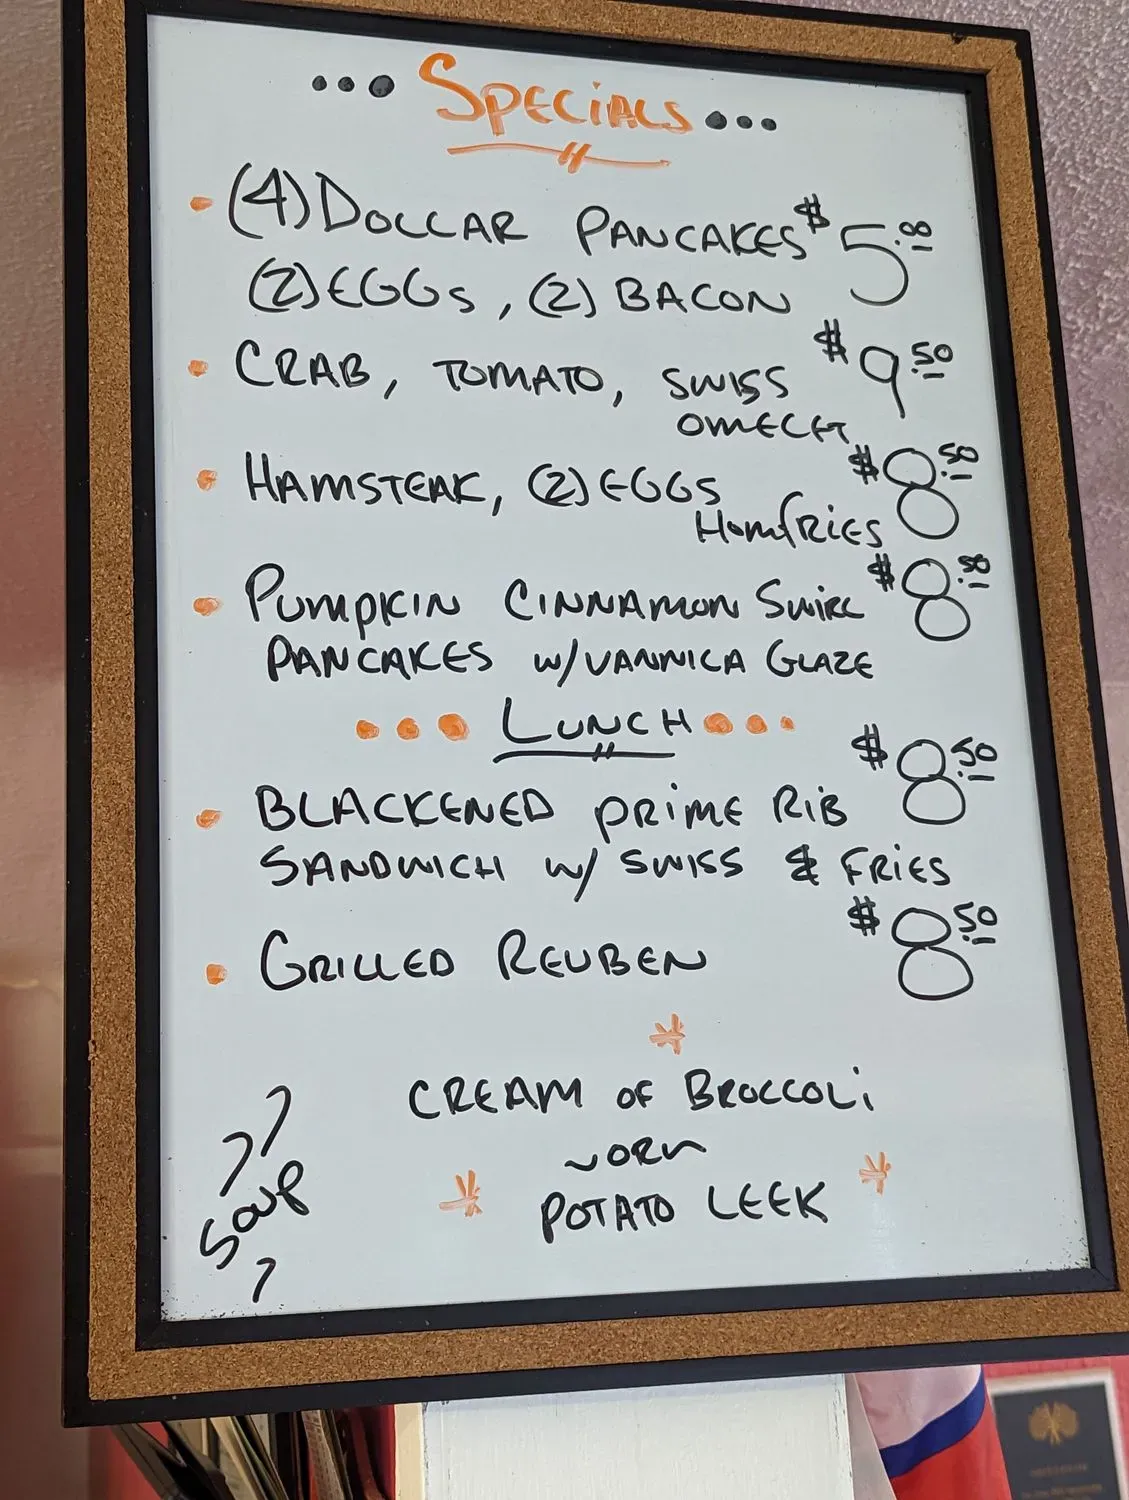 ... Specials ...
• (4) Dollar Pancakes $5.00
(2) Eggs, (2) Bacon
• Crab, Tomato, Swiss $9.50
Omelet
• Hamsteak, (2) Eggs $8.50
Homfries
• Pumpkin Cinnamon Swirl $8.50
Pancakes w/Vannila Glaze
... Lunch ...
• Blackened Prime Rib $8.50
Sandwich w/ Swiss & Fries
• Grilled Reuben $8.50
Soup
Cream of Broccoli
~or~
Potato Leek